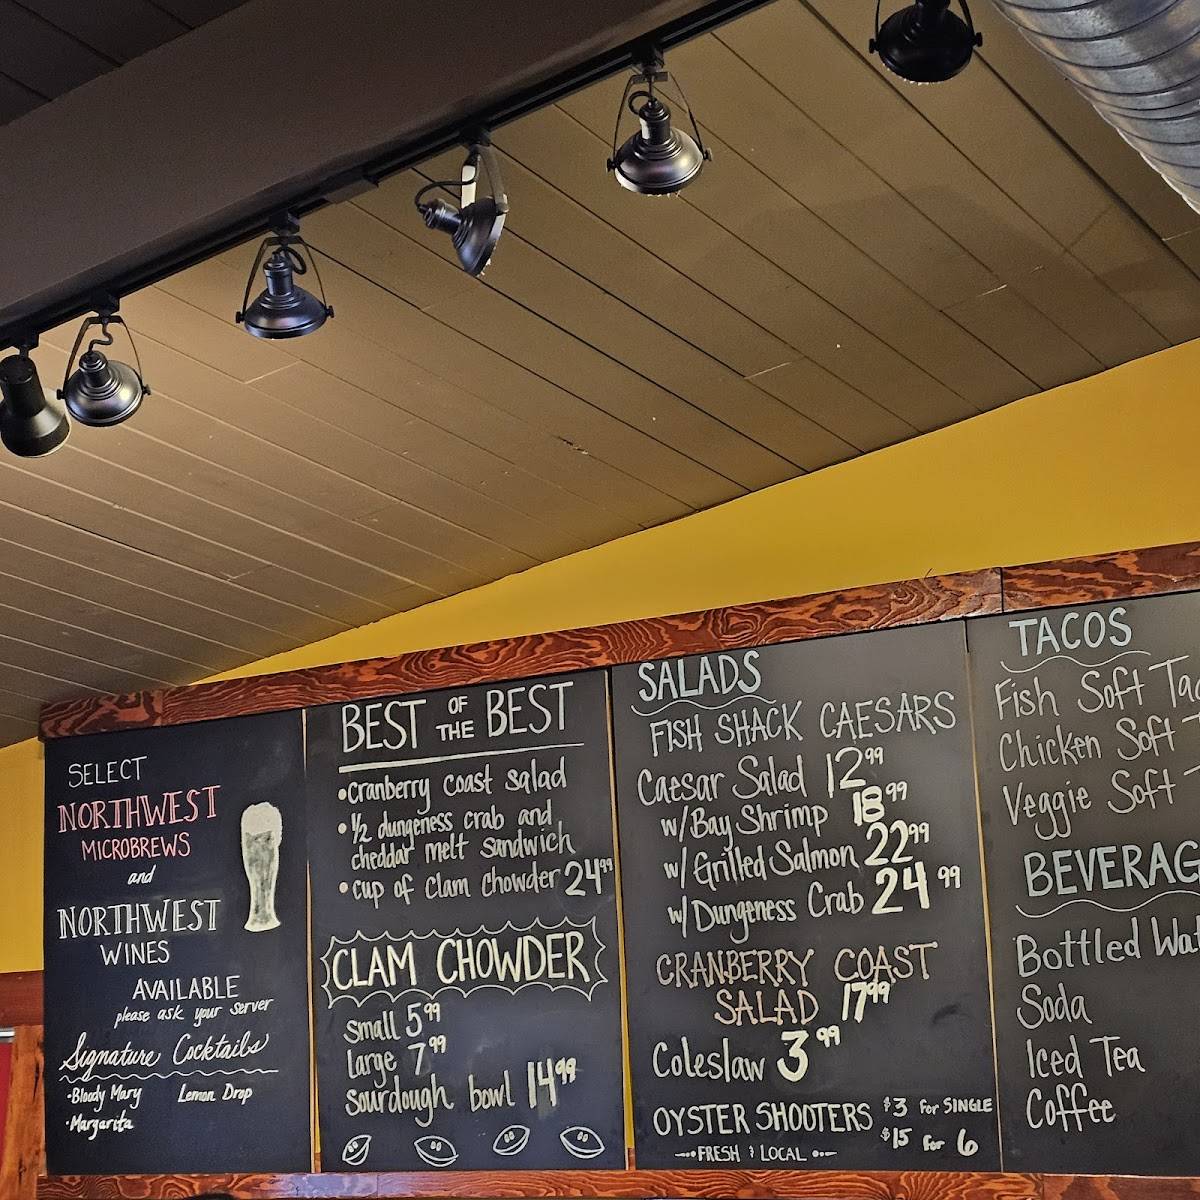 SELECT
NORTHWEST
MICROBREWS
and
NORTHWEST
WINES
AVAILABLE
please ask your server
Signature Cocktails
•Bloody Mary Lemon Drop
•Margarita
BEST OF THE BEST
•cranberry coast salad
•1/2 dungeness crab and
cheddar melt sandwich
•cup of clam chowder 24.99
CLAM CHOWDER
small 5.99
large 7.99
sourdough bowl 14.99
SALADS
FISH SHACK CAESARS
Caesar Salad 12.99
w/Bay Shrimp 18.99
w/Grilled Salmon 22.99
w/Dungeness Crab 24.99
CRANBERRY COAST
SALAD 17.99
Coleslaw 3.99
OYSTER SHOOTERS $3 for SINGLE
$15 for 6
FRESH & LOCAL
TACOS
Fish Soft
Chicken Soft
Veggie Soft
BEVERAG
Bottled Wat
Soda
Iced Tea
Coffee